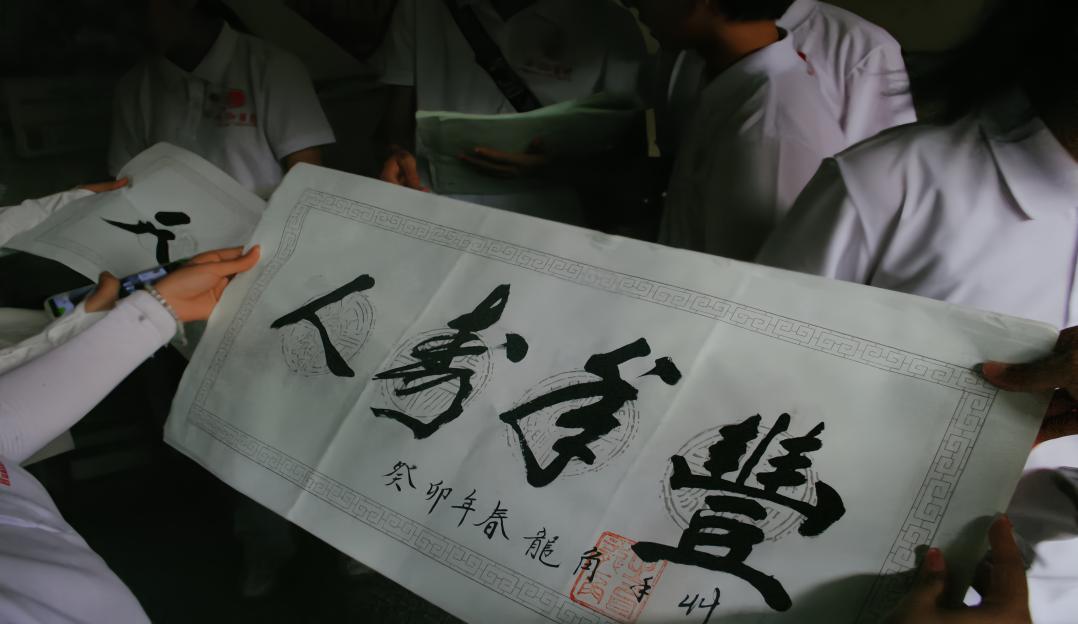 人寿年豐
癸卯年春 龍角